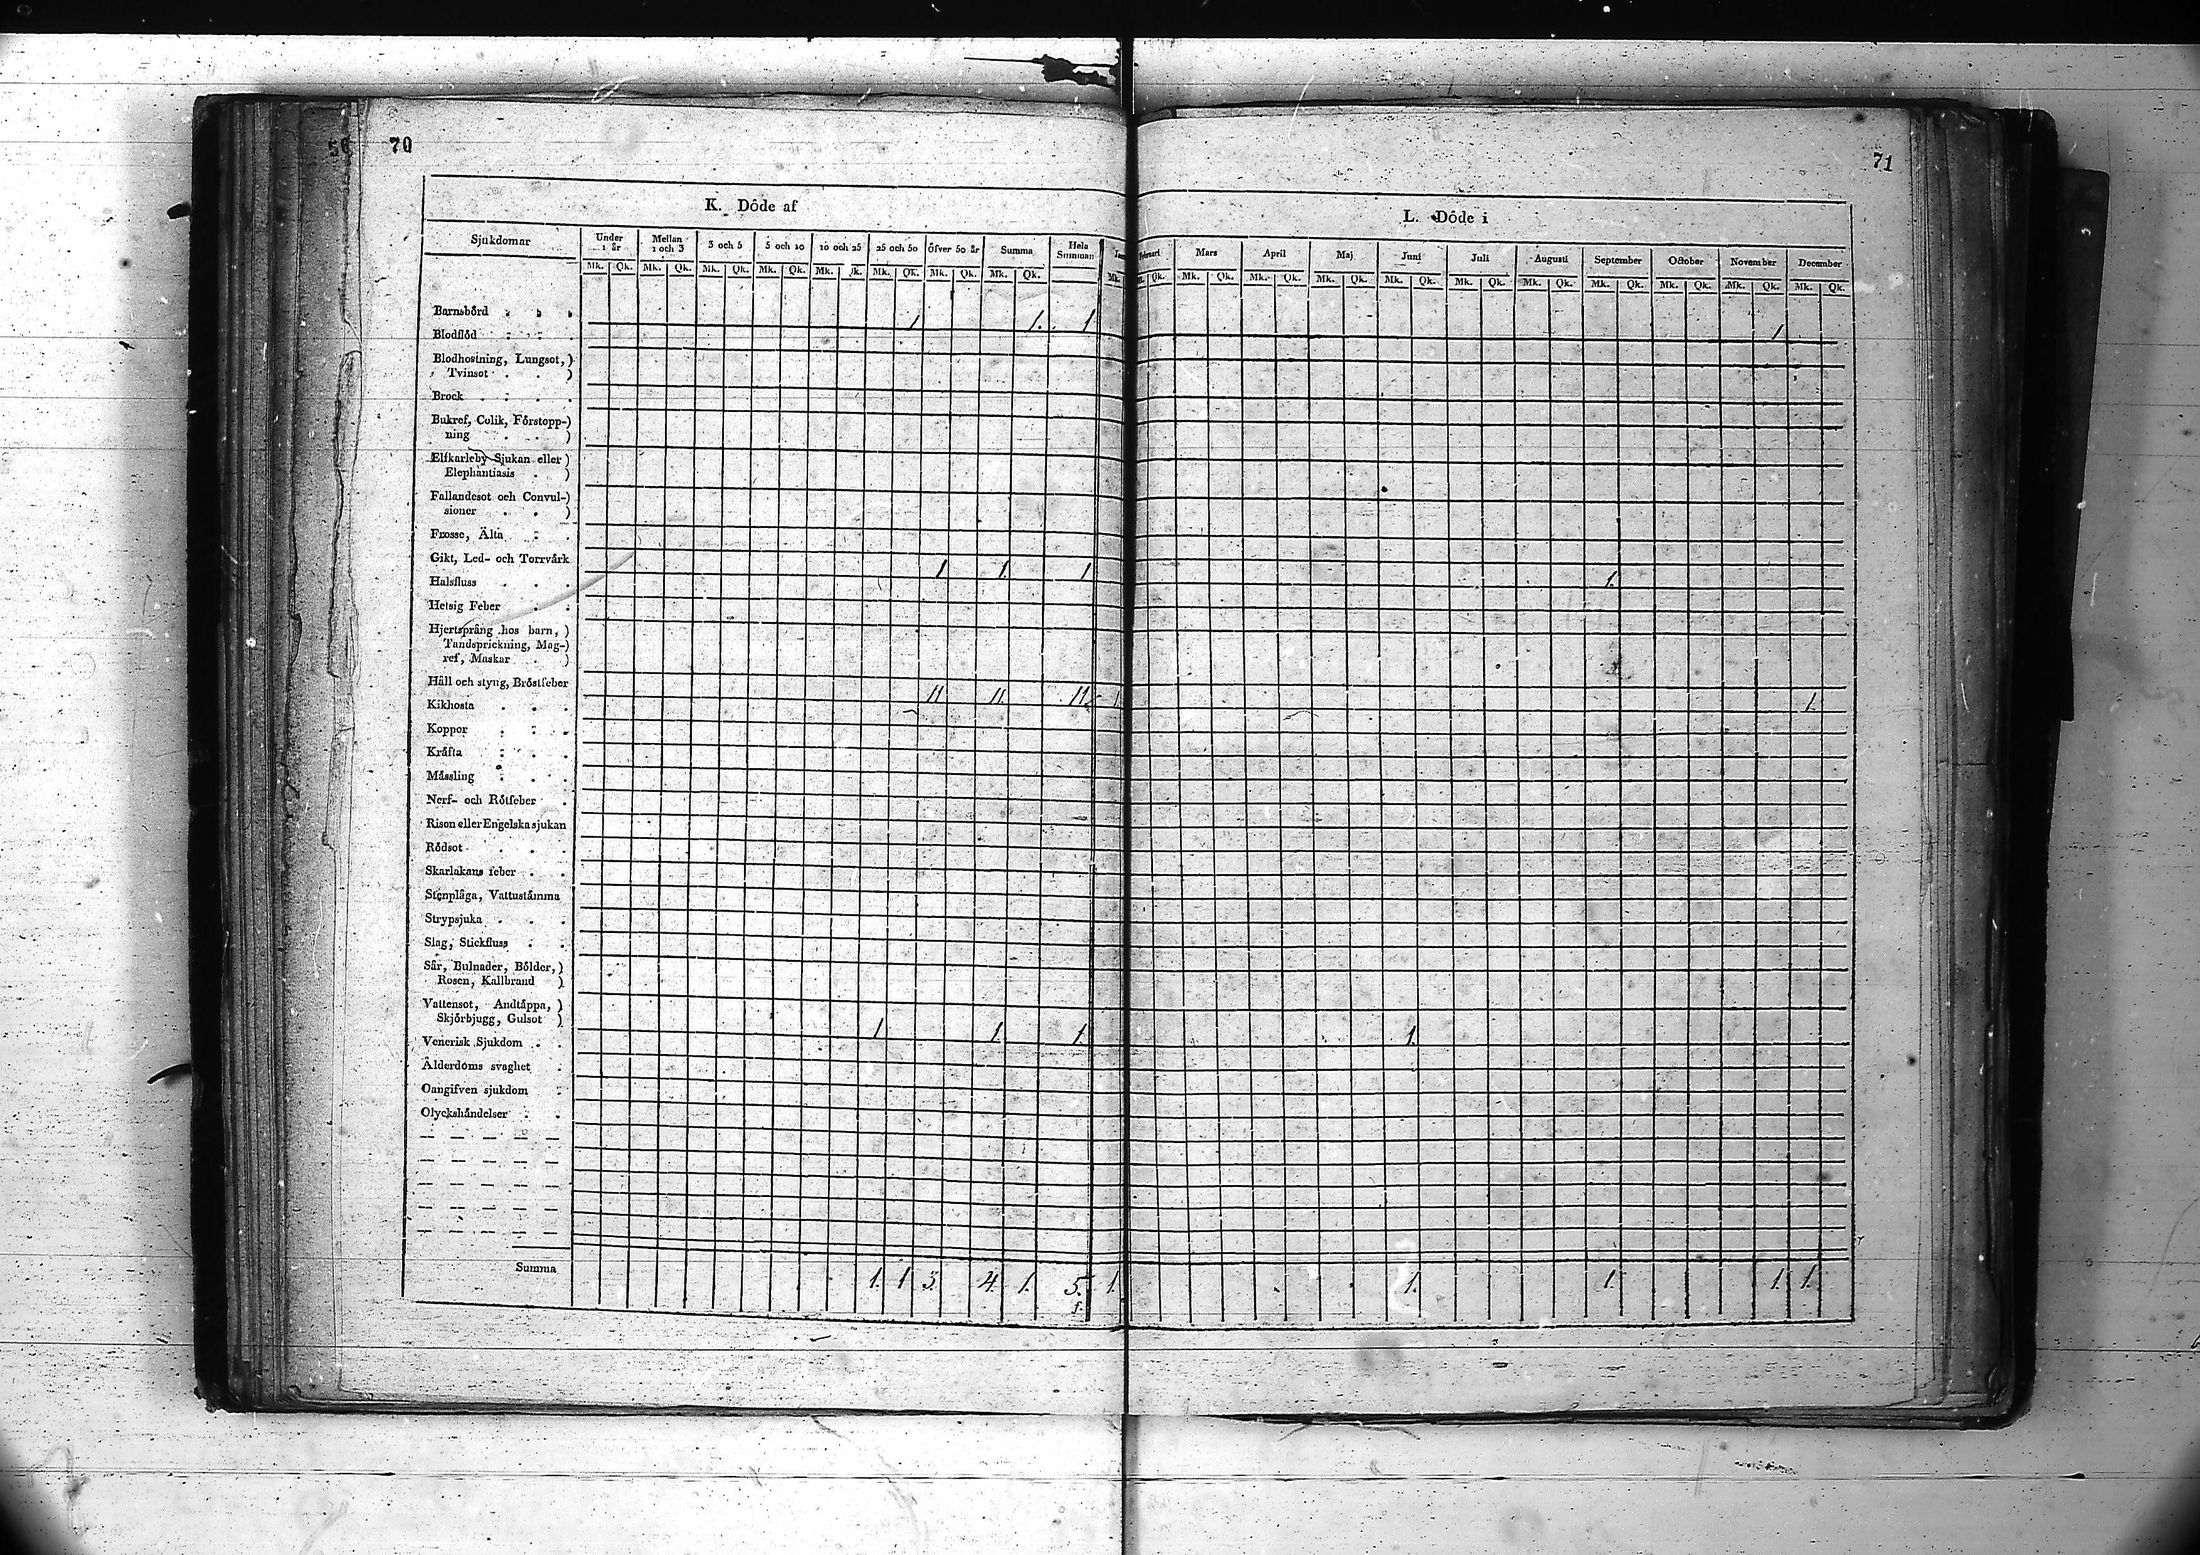 70
71
K. Dôde af
Sjukdomar
Under 1 år
Mellan 1 och 3
3 och 5
5 och 10
10 och 25
25 och 50
Öfver 50 år
Summa
Hela Summan
Mk. Qk. Mk. Qk. Mk. Qk. Mk. Qk. Mk. Mk. Qk. Mk. Qk. Mk. Qk.
Barnsbörd 1 1. 1
Blodflöd
Blodhostning, Lungsot,)
Tvinsot )
Brock
Bukref, Colik, Förstopp-)
ning )
Elfkarleby Sjukan eller )
Elephantiasis )
Fallandesot och Convul-)
sioner )
Frosse, Älta
Gikt, Led- och Torrvårk 1 1. 1
Halsfluss
Hetsig Feber
Hjertsprång hos barn, )
Tandsprickning, Mag-)
ref, Maskar )
Håll och styng, Bröstfeber 11 11. 11
Kikhosta
Koppor
Kråfta
Måssling
Nerf- och Rötfeber
Rison eller Engelska sjukan
Rödsot
Skarlakans feber
Stenplåga, Vattuståmma
Strypsjuka
Slag, Stickfluss
Sår, Bulnader, Bölder, )
Rosen, Kallbrand )
Vattensot, Andtåppa, )
Skjörbjugg, Gulsot ) 1 1. 1.
Venerisk Sjukdom
Ålderdoms svaghet
Oangifven sjukdom
Olyckshåndelser
Summa 1. 1 3. 4. 1. 5.
L. Dôde i
Mars April Maj Juni Juli Augusti September October November December
Mk. Qk. Mk. Qk. Mk. Qk. Mk. Qk. Mk. Qk. Mk. Qk. Mk. Qk. Mk. Qk. Mk. Qk. Mk. Qk. Mk. Qk.
1
1.
1 1.
1.
1. 1. 1. 1. 1.